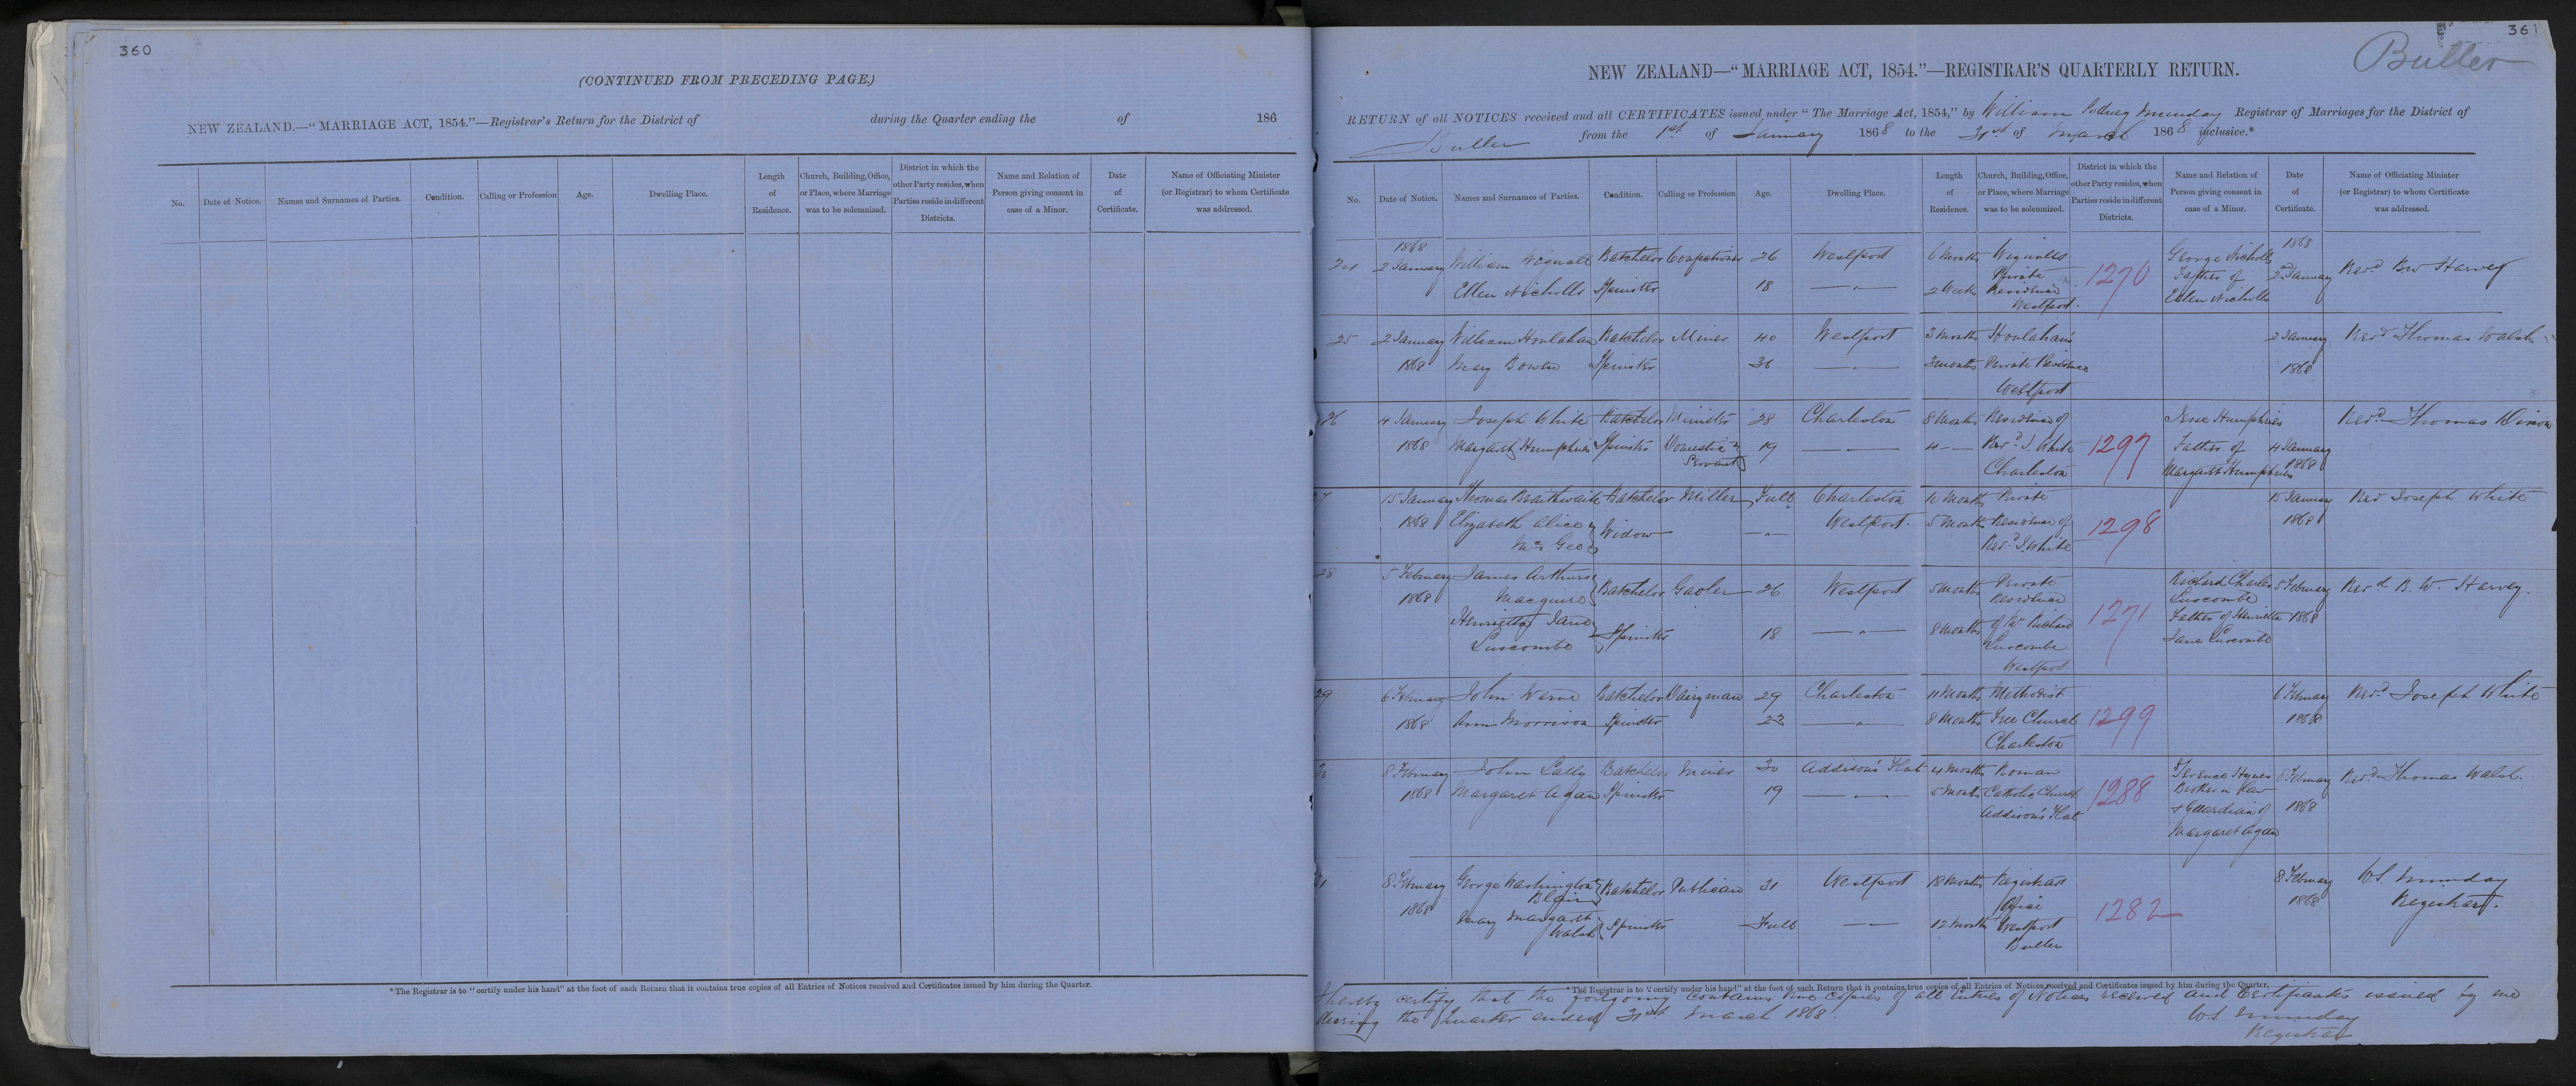 360
(CONTINUED FROM PRECEDING PAGE.)
NEW ZEALAND.—"MARRIAGE ACT, 1854."—Registrar's Return for the District of during the Quarter ending the of 186
No. Date of Notice. Names and Surnames of Parties. Condition. Calling or Profession Age. Dwelling Place. Length of Residence. Church, Building, Office, or Place, where Marriage was to be solemnized. District in which the other Party resides, when Parties reside in different Districts. Name and Relation of Person giving consent in case of a Minor. Date of Certificate. Name of Officiating Minister (or Registrar) to whom Certificate was addressed.
*The Registrar is to "certify under his hand" at the foot of each Return that it contains true copies of all Entries of Notices received and Certificates issued by him during the Quarter.
361
Buller
NEW ZEALAND—"MARRIAGE ACT, 1854."—REGISTRAR'S QUARTERLY RETURN.
RETURN of all NOTICES received and all CERTIFICATES issued under "The Marriage Act, 1854," by William Munday Registrar of Marriages for the District of
Buller from the 1st of January 1868 to the 31st of March 1868 inclusive.*
No. Date of Notice. Names and Surnames of Parties. Condition. Calling or Profession Age. Dwelling Place. Length of Residence. Church, Building, Office, or Place, where Marriage was to be solemnized. District in which the other Party resides, when Parties reside in different Districts. Name and Relation of Person giving consent in case of a Minor. Date of Certificate. Name of Officiating Minister (or Registrar) to whom Certificate was addressed.
1868 1868
24 2 January William Wignall Batchelor Confectioner 26 Westport 6 Months Wignalls 1270 George Nicholls 2nd January Revd BW Harvey
Ellen Nicholls Spinster 18 —"— 2 Weeks Private Father of
Residence Ellen Nicholls
Westport.
25 2 January William Houlahan Batchelor Miner 40 Westport 3 Months Houlahan's 2 January Revd Thomas Walsh
1868 Mary Bowen Spinster 36 —"— 3 months Private Residence 1868
Westport
26 4 January Joseph White Batchelor Minister 28 Charleston 8 Months Residence of Jesse Humphries Revd Thomas Dixon
1868 Margaret Humphries Spinster Domestic 19 —"— 4 — Revd J. White 1297 Father of 4 January
Servant Charleston Margaret Humphries 1868
27 15 January Thomas Braithwaite Batchelor Miller Full Charleston 10 Months Private 15 January Revd Joseph White
1868 Elizabeth Alice Widow —"— Westport. 5 Months Residence of 1298 1868
McGeo Revd J. White
28 5 February James Arthurs Batchelor Gaoler 26 Westport 5 months Private Richard Charles 5 February Revd B. W. Harvey.
1868 Macguire Residence Luscombe
Henrietta Jane Spinster 18 —"— 8 months of Mr Richard 1271 Father of Henrietta 1868
Luscombe Luscombe Jane Luscombe
Westport.
29 6 February John Warne Batchelor Dairyman 29 Charleston 11 Months Methodist 6 February Revd Joseph White
1868 Ann Morrison Spinster 23 —"— 8 Months Free Church 1299 1868
Charleston
30 8 February John Lally Batchelor Miner 30 Addison's Flat 4 months Roman Terence Hynes 8 February Revd Thomas Walsh.
1868 Margaret Agan Spinster 19 —"— 5 Months Catholic Church 1288 Brother in Law 1868
Addison's Flat & Guardian of
Margaret Agan
31 8 February George Washington Batchelor Publican 31 Westport 18 Months Registrars 8 February W.L. Munday
1868 Blair Office 1868 Registrar.
Mary Margaret Spinster Full —"— 12 Months Westport 1282
Walsh Buller
*The Registrar is to "certify under his hand" at the foot of each Return that it contains true copies of all Entries of Notices received and Certificates issued by him during the Quarter.
I hereby certify that the foregoing contains true copies of all Entries of Notices received and Certificates issued by me
during the Quarter ended 31st March 1868.
W.L. Munday
Registrar